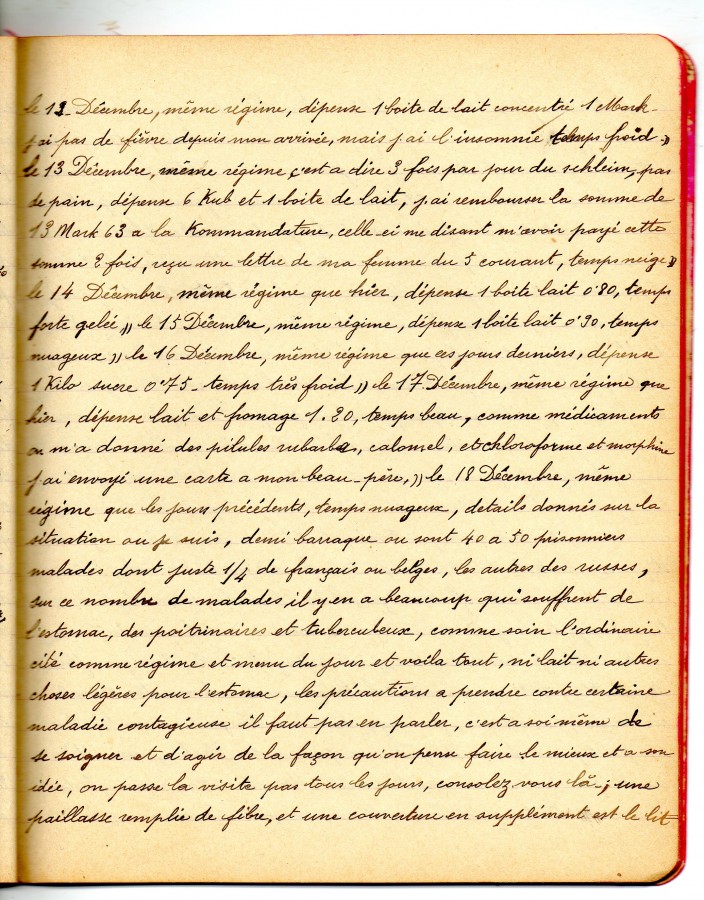 le 12 Décembre, même régime, dépense 1 boite de lait concentré 1 Mark
j'ai pas de fièvre depuis mon arrivée, mais j'ai l'insomnie, temps froid.»
le 13 Décembre, même régime c'est a dire 3 fois par jour du schleim, pas
de pain, dépense 6 Kub et 1 boite de lait, j'ai rembourser la somme de
13 Mark 63 a la Kommandature, celle-ci me disant m'avoir payé cette
somme 2 fois, reçu une lettre de ma femme du 5 courant, temps neige»
le 14 Décembre, même régime que hier, dépense 1 boite lait 0'80, temps
forte gelée,» le 15 Décembre, même régime, dépense 1 boite lait 0'90, temps
nuageux » le 16 Décembre, même régime que ces jours derniers, dépense
1 Kilo sucre 0'75 - temps très froid » le 17 Décembre, même régime que
hier, dépense lait et fromage 1.20, temps beau, comme médicaments
on m'a donné des pilules rubarbe, calomel, et chloroforme et morphine
j'ai envoyé une carte a mon beau-père,» le 18 Décembre, même
régime que les jours précédents, temps nuageux, details donnés sur la
situation ou je suis, demi barraque ou sont 40 a 50 prisonniers
malades dont juste 1/4 de français ou belges, les autres des russes,
sur ce nombre de malades il y en a beaucoup qui souffrent de
l'estomac, des poitrinaires et tuberculeux, comme soin l'ordinaire
cité comme régime et menu du jour et voila tout, ni lait ni autres
choses légères pour l'estomac, les précautions a prendre contre certaine
maladie contagieuse il faut pas en parler, c'est a soi même de
se soigner et d'agir de la façon qu'on pense faire le mieux et a son
idée, on passe la visite pas tous les jours, consolez vous là -; une
paillasse remplie de fibre, et une couverture en supplément est le lit